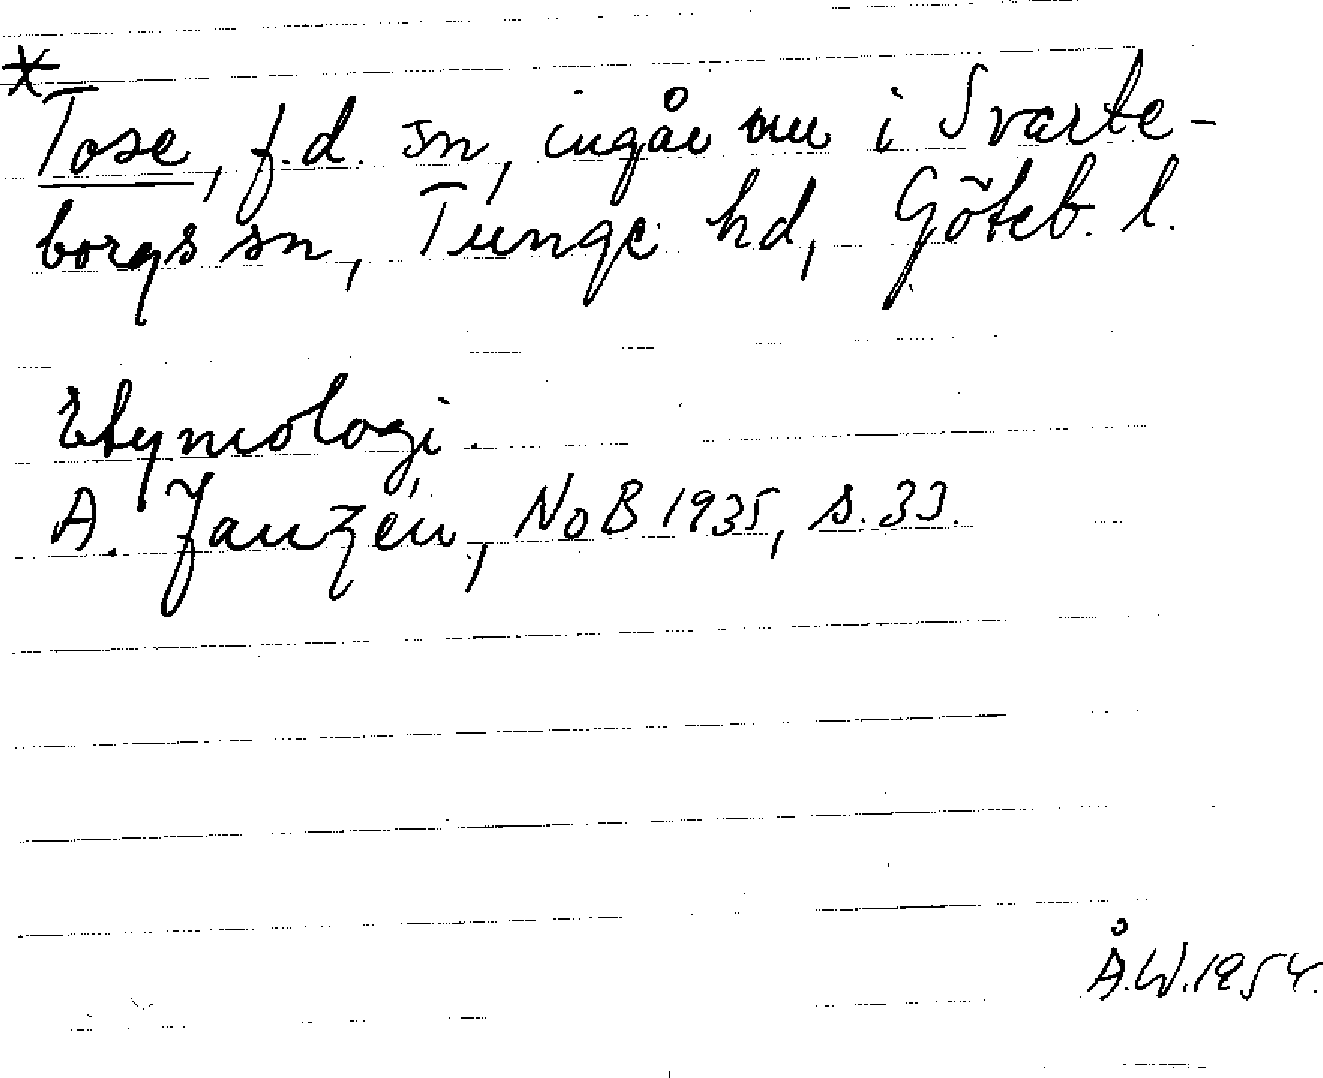 *
Tose, f.d. sn, ingår nu i Svarte-
borgs sn, Tunge hd, Göteb. l.
Etymologi.
A. Janzén, NoB 1935, s. 33.
Å.W. 1954.